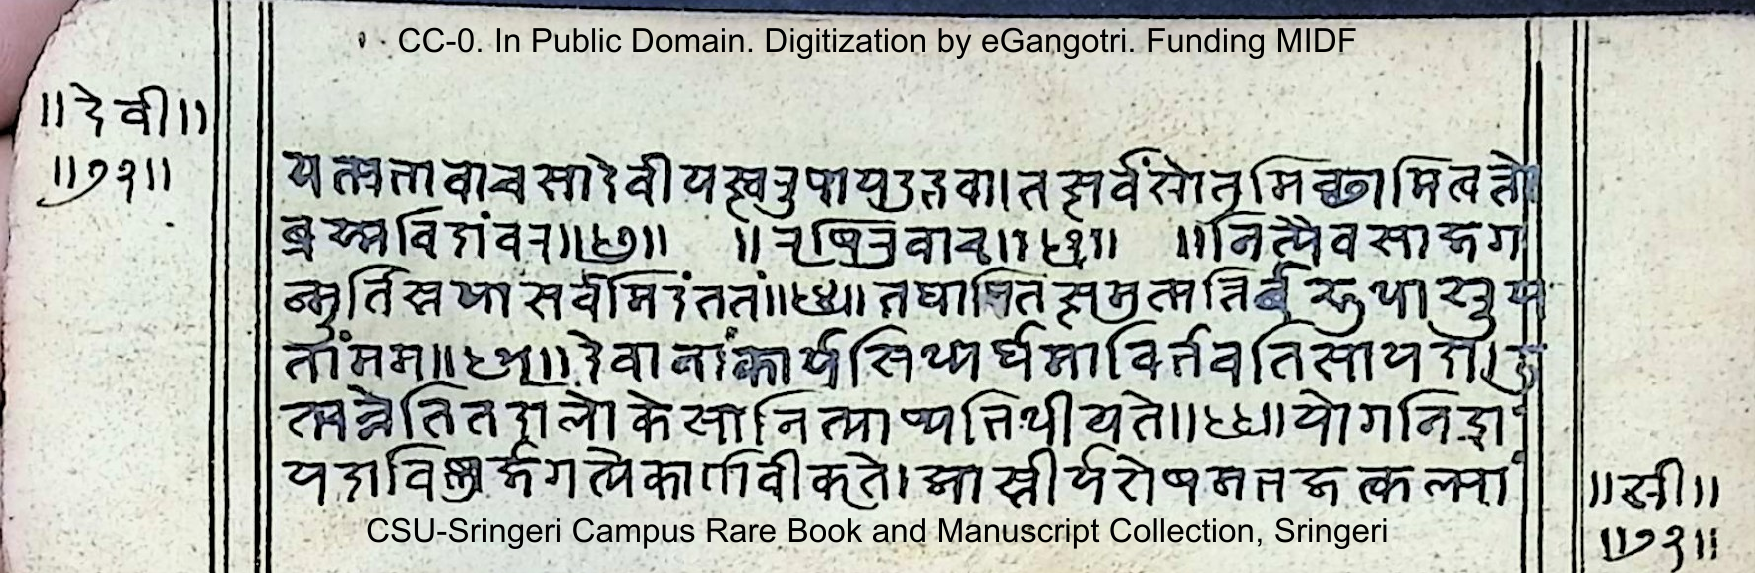 CC-0. In Public Domain. Digitization by eGangotri. Funding MIDF
॥देवी॥
॥७१॥
यत्प्रभावाचसादेवीयत्स्वरूपायदुद्भवा।तत्सर्वंश्रोतुमिच्छामित्वत्तो
ब्रह्मविदांवर॥६३॥ ॥ऋषिरुवाच॥॥६३॥ ॥नित्यैवसाजग
न्मूर्तिस्तयासर्वमिदंततं॥६४॥तथापितत्समुत्पत्तिर्बहुधाश्रूय
तांमम॥६५॥देवानांकार्यसिध्यर्थमाविर्भवतिसायदा।उ
त्पन्नेतितदालोकेसानित्याप्यभिधीयते॥६६॥योगनिद्रां
यदाविष्णुर्जगत्येकार्णवीकृते।आस्तीर्यशेषमभजत्कल्पां
॥श्री॥
॥७१॥
CSU-Sringeri Campus Rare Book and Manuscript Collection, Sringeri